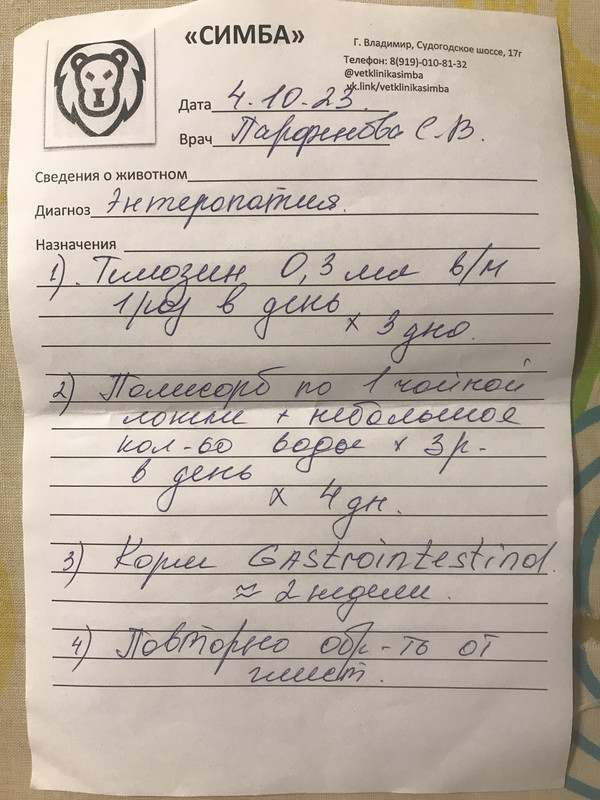 «СИМБА»
Г. Владимир, Судогодское шоссе, 17г
Телефон: 8(919)-010-81-32
@vetklinikasimba
vk.link/vetklinikasimba
Дата 4.10.23.
Врач Парфенова С.В.
Сведения о животном
Диагноз Энтеропатия.
Назначения
1). Тилозин 0,3 мл в/м
1 раз в день
x 3 дня.
2) Полисорб по 1 чайной
ложки + небольшое
кол-во воды x 3 р.
в день
x 4 дн.
3) Корм Gastrointestinal.
≈ 2 недели.
4) Повторно обр-ть от
глист.